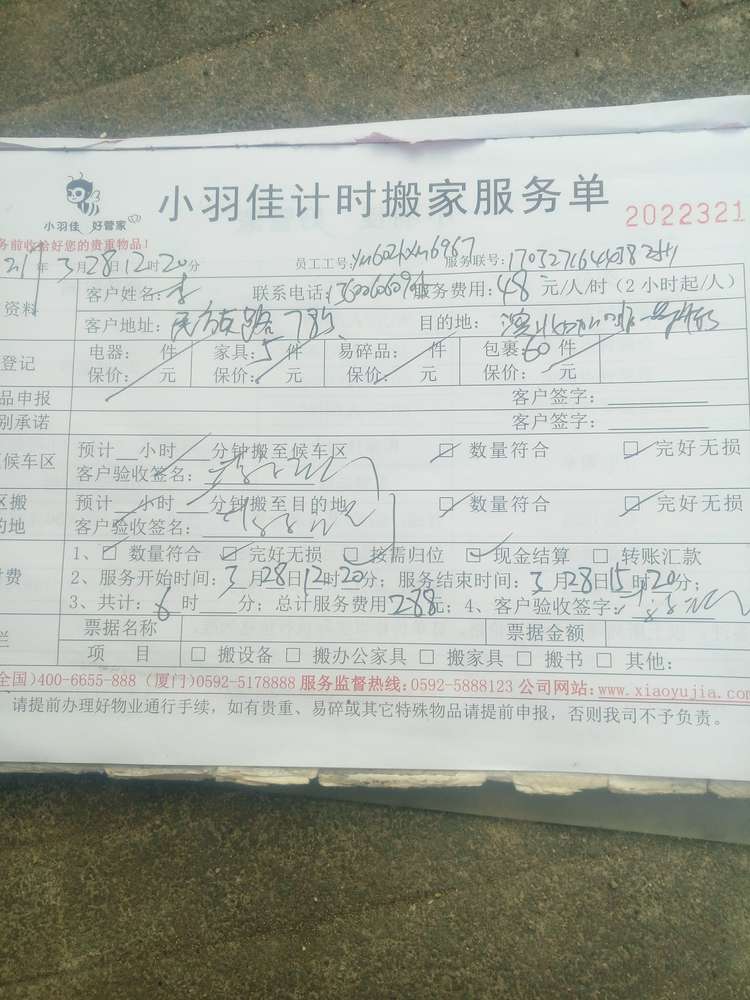 小羽佳 好管家
小羽佳计时搬家服务单
2022321
务前收拾好您的贵重物品!
年 3月28日12时20分 员工工号: 服务联号:
资料 客户姓名:李 联系电话: 服务费用:48 元/人/时(2小时起/人)
客户地址: 目的地:
登记 电器: 件 家具:5 件 易碎品: 件 包裹:60 件
保价: 元 保价: 元 保价: 元 保价: 元
品申报 客户签字:
别承诺 客户签字:
候车区 预计__小时___分钟搬至候车区 ☑ 数量符合 ☑ 完好无损
客户验收签名:
区搬 预计__小时___分钟搬至目的地 ☑ 数量符合 ☑ 完好无损
的地 客户验收签名:
1、☑ 数量符合 ☑ 完好无损 ☑ 按需归位 ☑ 现金结算 □ 转账汇款
付费 2、服务开始时间:3月28日12时20分;服务结束时间:3月28日15时20分;
3、共计:6时___分;总计服务费用288元;4、客户验收签字:
栏 票据名称 票据金额
项 目 □ 搬设备 □ 搬办公家具 □ 搬家具 □ 搬书 □ 其他:
全国)400-6655-888 (厦门)0592-5178888 服务监督热线:0592-5888123 公司网站:www.xiaoyujia.com
请提前办理好物业通行手续,如有贵重、易碎或其它特殊物品请提前申报,否则我司不予负责。